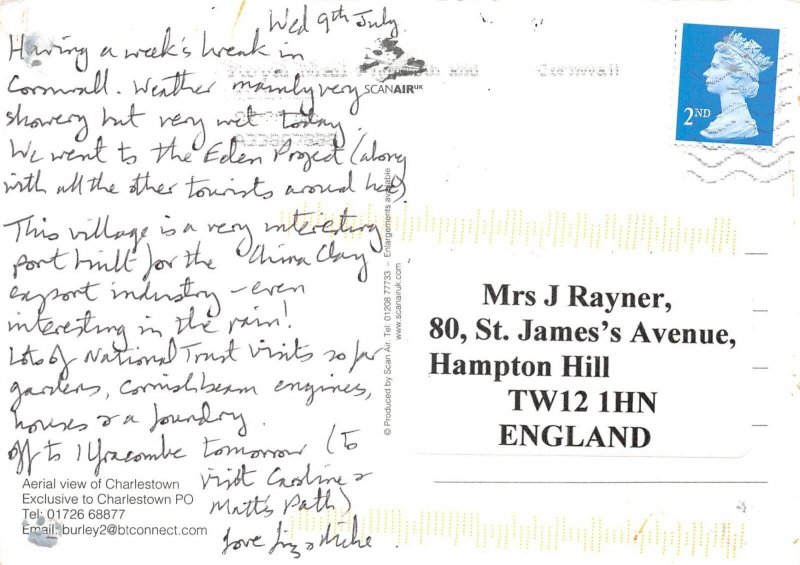 Wed 9th July
Having a week's break in
Cornwall. Weather mainly very
showery but very wet today.
We went to the Eden Project (along
with all the other tourists around here)
This village is a very interesting
port built for the China Clay
export industry – even
interesting in the rain!
Lots of National Trust visits so far
gardens, Cornish beam engines,
houses & a foundry.
Off to Ilfracombe tomorrow (to
visit Caroline &
Matt's Path)
Love & Mike
Aerial view of Charlestown
Exclusive to Charlestown PO
Tel: 01726 68877
Email: burley2@btconnect.com
SCANAIRUK
© Produced by Scan Air. Tel: 01208 77733 – Enlargements available
www.scanairuk.com
2ND
Mrs J Rayner,
80, St. James's Avenue,
Hampton Hill
TW12 1HN
ENGLAND